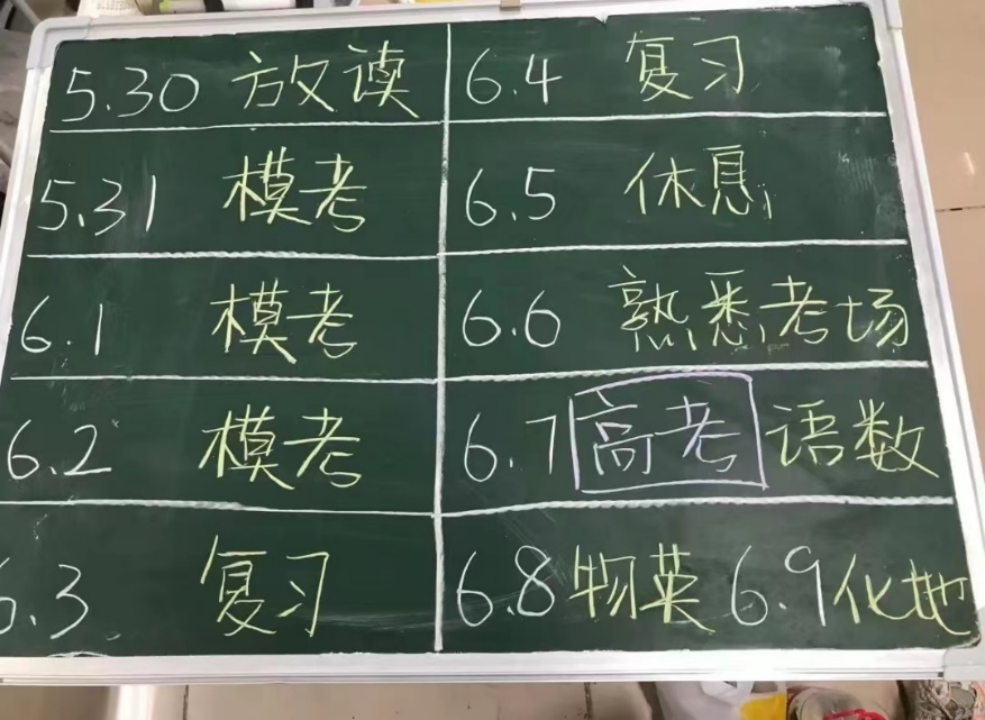 5.30 放读
5.31 模考
6.1 模考
6.2 模考
6.3 复习
6.4 复习
6.5 休息
6.6 熟悉考场
6.7 高考 语数
6.8 物英 6.9 化地